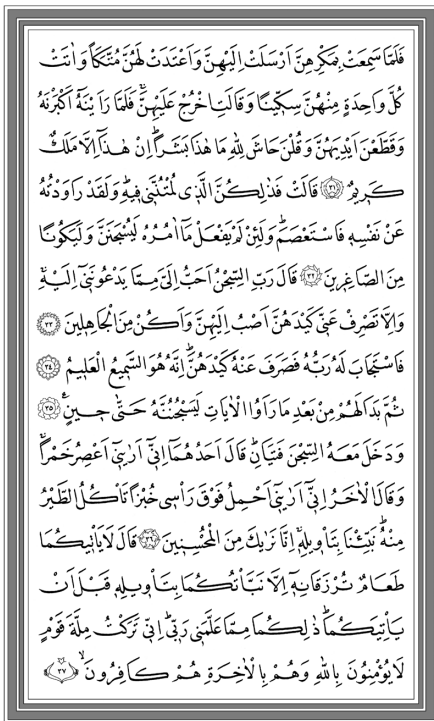 فَلَمَّا سَمِعَتْ بِمَكْرِهِنَّ اَرْسَلَتْ اِلَيْهِنَّ وَاَعْتَدَتْ لَهُنَّ مُتَّكَـًٔا وَاٰتَتْ
كُلَّ وَاحِدَةٍ مِنْهُنَّ سِكّ۪ينًا وَقَالَتِ اخْرُجْ عَلَيْهِنَّۚ فَلَمَّا رَاَيْنَهُٓ اَكْبَرْنَهُ
وَقَطَّعْنَ اَيْدِيَهُنَّ وَقُلْنَ حَاشَ لِلّٰهِ مَا هٰذَا بَشَرًاۜ اِنْ هٰذَٓا اِلَّا مَلَكٌ
كَر۪يمٌ ﴿٣١﴾ قَالَتْ فَذٰلِكُنَّ الَّذ۪ي لُمْتُنَّن۪ي ف۪يهِۜ وَلَقَدْ رَاوَدْتُهُ
عَنْ نَفْسِه۪ فَاسْتَعْصَمَۜ وَلَئِنْ لَمْ يَفْعَلْ مَٓا اٰمُرُهُ لَيُسْجَنَنَّ وَلَيَكُونًا
مِنَ الصَّاغِر۪ينَ ﴿٣٢﴾ قَالَ رَبِّ السِّجْنُ اَحَبُّ اِلَيَّ مِمَّا يَدْعُونَن۪ٓي اِلَيْهِۚ
وَاِلَّا تَصْرِفْ عَنّ۪ي كَيْدَهُنَّ اَصْبُ اِلَيْهِنَّ وَاَكُنْ مِنَ الْجَاهِل۪ينَ ﴿٣٣﴾
فَاسْتَجَابَ لَهُ رَبُّهُ فَصَرَفَ عَنْهُ كَيْدَهُنَّۜ اِنَّهُ هُوَ السَّم۪يعُ الْعَل۪يمُ ﴿٣٤﴾
ثُمَّ بَدَا لَهُمْ مِنْ بَعْدِ مَا رَاَوُا الْاٰيَاتِ لَيَسْجُنُنَّهُ حَتّٰى ح۪ينٍ۟ ﴿٣٥﴾
وَدَخَلَ مَعَهُ السِّجْنَ فَتَيَانِۜ قَالَ اَحَدُهُمَٓا اِنّ۪ٓي اَرٰين۪ٓي اَعْصِرُ خَمْرًاۚ
وَقَالَ الْاٰخَرُ اِنّ۪ٓي اَرٰين۪ٓي اَحْمِلُ فَوْقَ رَأْس۪ي خُبْزًا تَأْكُلُ الطَّيْرُ
مِنْهُۜ نَبِّئْنَا بِتَأْو۪يلِه۪ۚ اِنَّا نَرٰيكَ مِنَ الْمُحْسِن۪ينَ ﴿٣٦﴾ قَالَ لَا يَأْت۪يكُمَا
طَعَامٌ تُرْزَقَانِه۪ٓ اِلَّا نَبَّأْتُكُمَا بِتَأْو۪يلِه۪ قَبْلَ اَنْ
يَأْتِيَكُمَاۜ ذٰلِكُمَا مِمَّا عَلَّمَن۪ي رَبّ۪يۜ اِنّ۪ي تَرَكْتُ مِلَّةَ قَوْمٍ
لَا يُؤْمِنُونَ بِاللّٰهِ وَهُمْ بِالْاٰخِرَةِ هُمْ كَافِرُونَۙ ﴿٣٧﴾